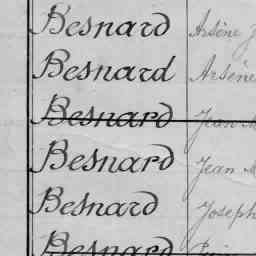 Besnard Arsène J
Besnard Arsène
Besnard Jean M
Besnard Jean M
Besnard Joseph
Besnard